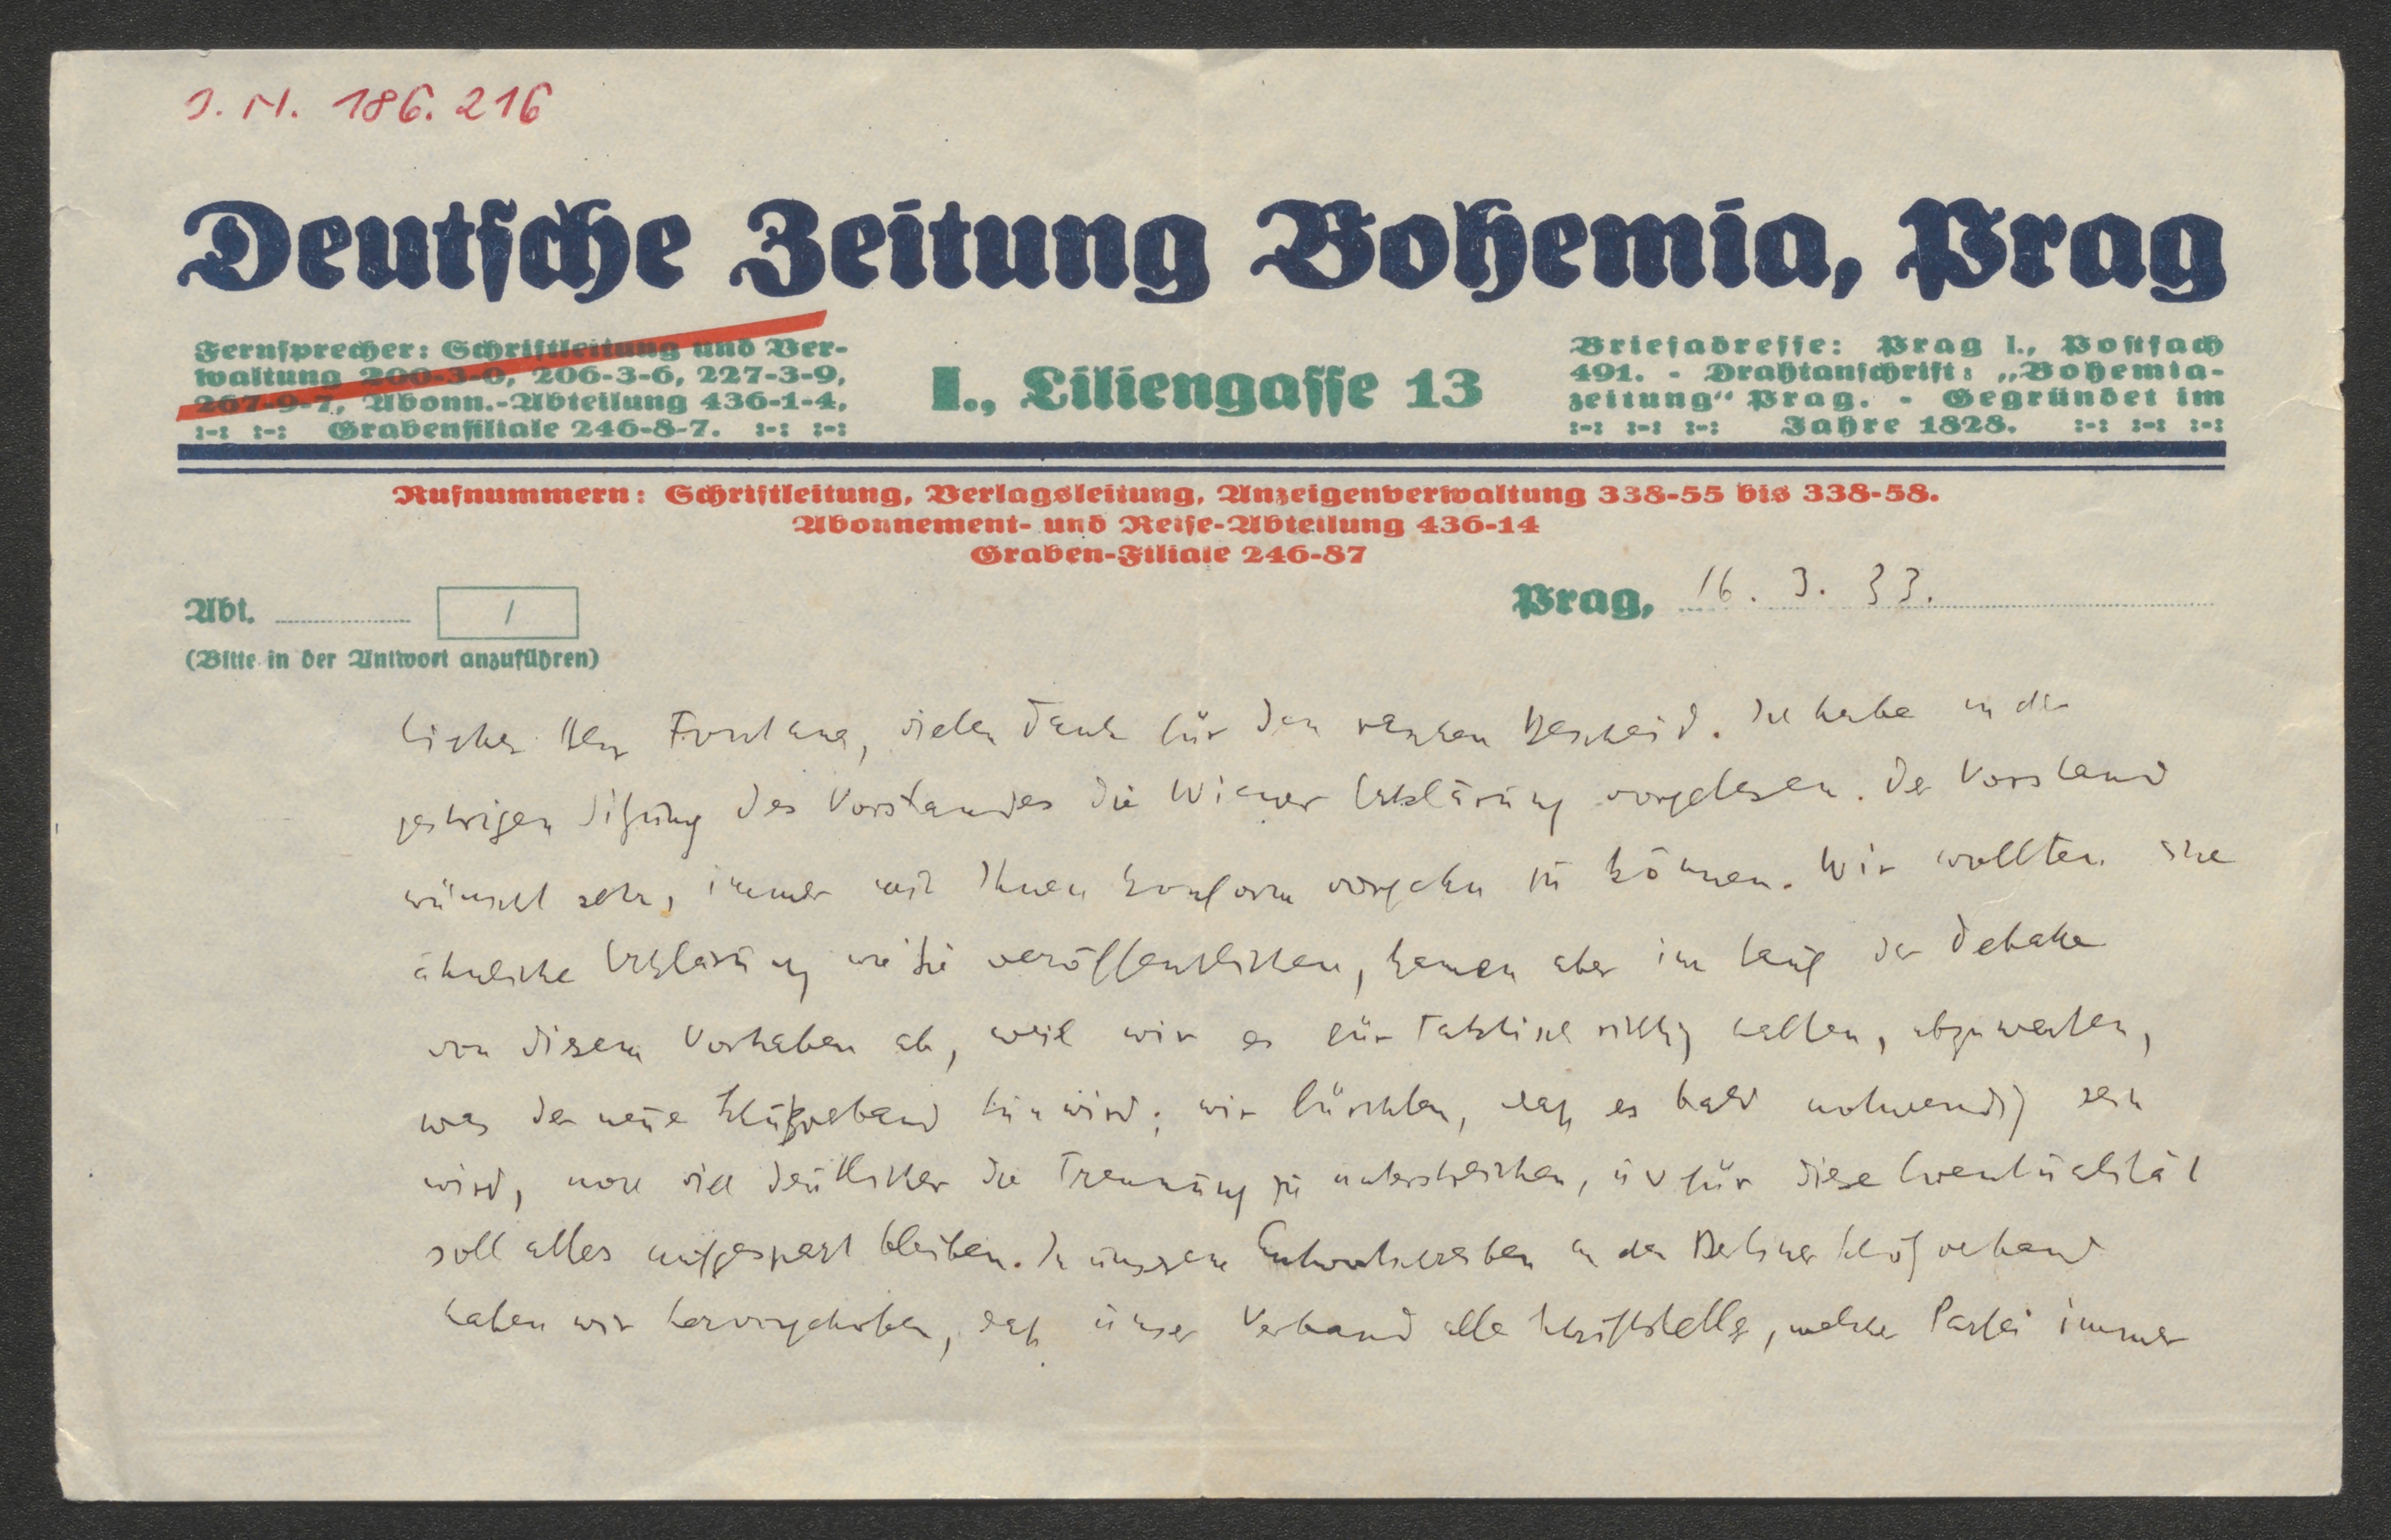 I. N. 186.216
Deutsche Zeitung Bohemia, Prag
Fernsprecher: Schriftleitung und Ver-
waltung 200-3-0, 206-3-6, 227-3-9,
267-9-7, Abonn.-Abteilung 436-1-4,
:-: :-: Grabenfiliale 246-8-7. :-: :-:
I., Liliengasse 13
Briefadresse: Prag I., Postfach
491. - Drahtanschrift: „Bohemia-
zeitung“ Prag. - Gegründet im
:-: :-: :-: Jahre 1828. :-: :-: :-:
Rufnummern: Schriftleitung, Verlagsleitung, Anzeigenverwaltung 338-55 bis 338-58.
Abonnement- und Reise-Abteilung 436-14
Graben-Filiale 246-87
Abt. 1
Prag, 16. 3. 33.
(Bitte in der Antwort anzuführen)
Lieber Herr Fontana, vielen Dank für den raschen Bescheid. Ich habe in der
gestrigen Sitzung des Vorstandes die Wiener Erklärung vorgelesen. Der Vorstand
wünscht sehr, immer mit Ihnen konform vorgehn zu können. Wir wollten eine
ähnliche Erklärung wie Sie veröffentlichen, kamen aber im Lauf der Debatte
von diesem Vorhaben ab, weil wir es für taktisch richtig halten, abzuwarten,
was der neue Schutzverband tun wird; wir fürchten, daß es bald notwendig sein
wird, noch viel deutlicher die Trennung zu unterstreichen, u für diese Eventualität
soll alles aufgespart bleiben. In unserem Antwortschreiben an den Berliner Schutzverband
haben wir hervorgehoben, daß unser Verband alle Schriftsteller, welcher Partei immer